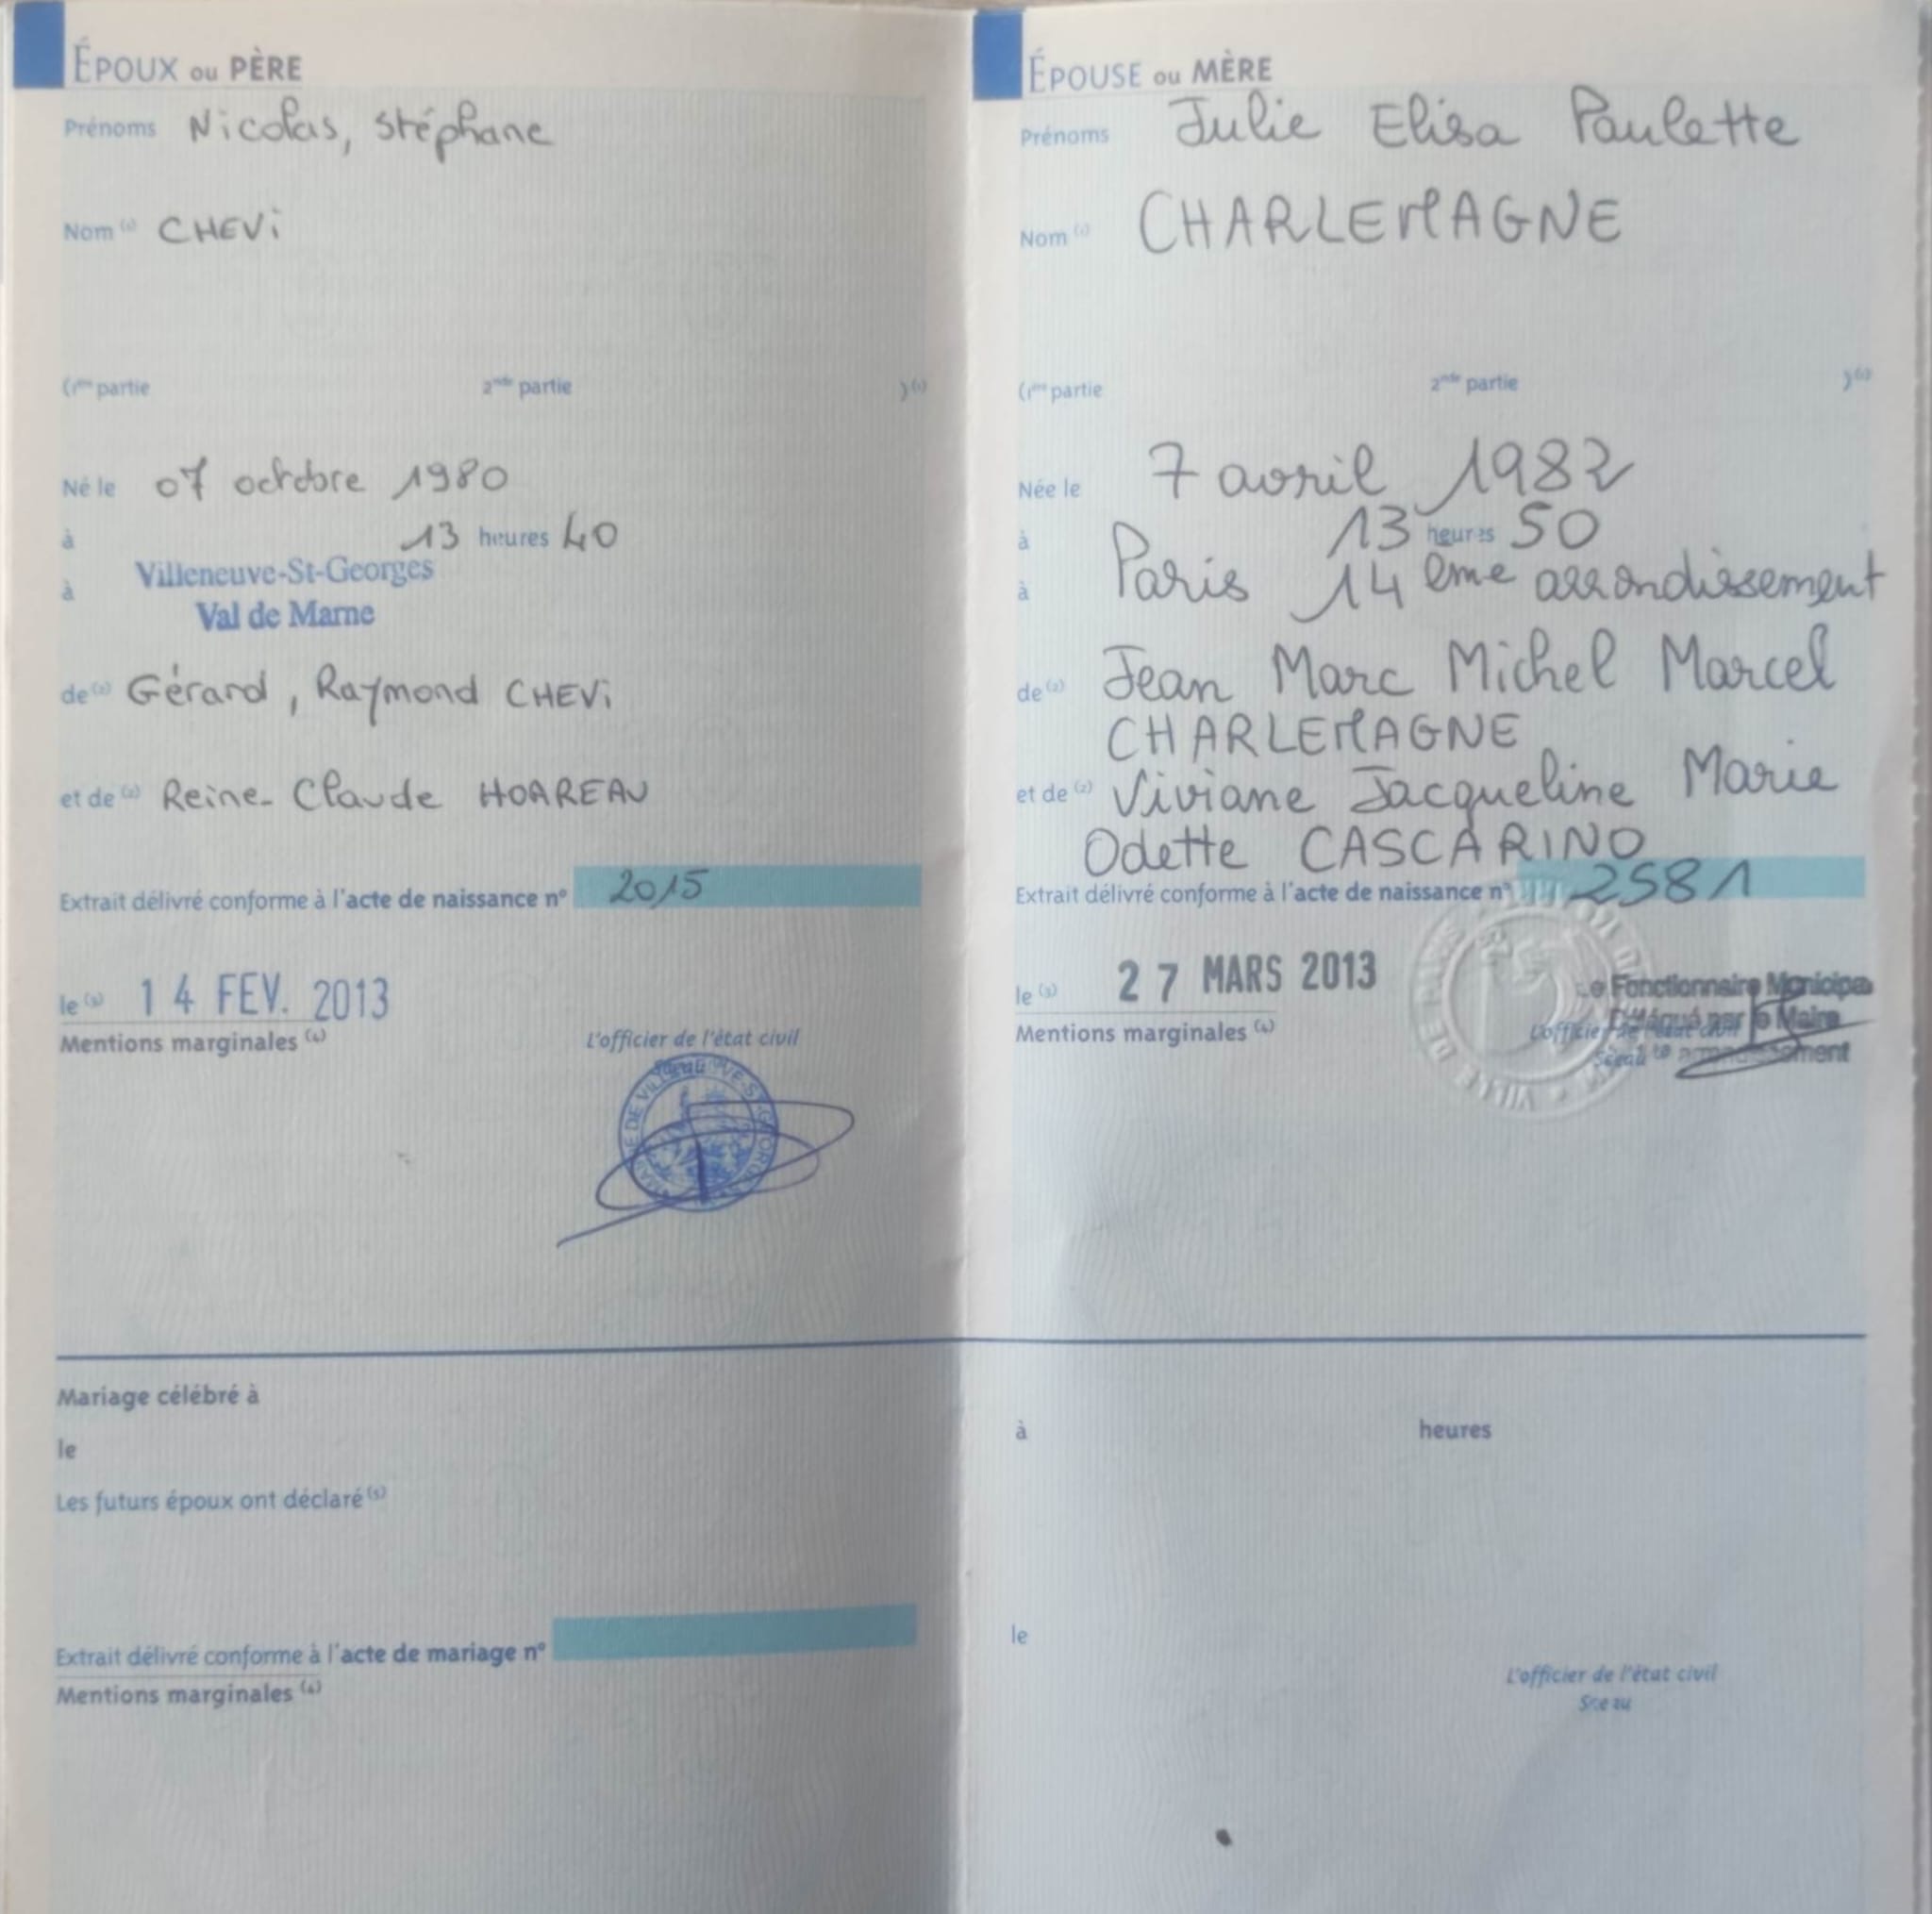 ÉPOUX ou PÈRE
Prénoms Nicolas, Stéphane
Nom (1) CHEVi
(1ère partie 2nde partie ) (1)
Né le 07 octobre 1980
à 13 heures 40
à Villeneuve-St-Georges
Val de Marne
de (2) Gérard, Raymond CHEVi
et de (2) Reine-Claude HOAREAU
Extrait délivré conforme à l'acte de naissance n° 2015
le (3) 14 FEV. 2013
Mentions marginales (4)
L'officier de l'état civil
Mariage célébré à
le
Les futurs époux ont déclaré (5)
Extrait délivré conforme à l'acte de mariage n°
Mentions marginales (4)
ÉPOUSE ou MÈRE
Prénoms Julie Elisa Paulette
Nom (1) CHARLEMAGNE
(1ère partie 2nde partie ) (1)
Née le 7 avril 1982
à 13 heures 50
à Paris 14 ème arrondissement
de (2) Jean Marc Michel Marcel
CHARLEMAGNE
et de (2) Viviane Jacqueline Marie
Odette CASCARINO
Extrait délivré conforme à l'acte de naissance n° 2581
le (3) 27 MARS 2013
Mentions marginales (4)
Le Fonctionnaire Municipal
Délégué par le Maire
L'officier de l'état civil
Sceau
VILLE DE
à heures
le
L'officier de l'état civil
Sceau